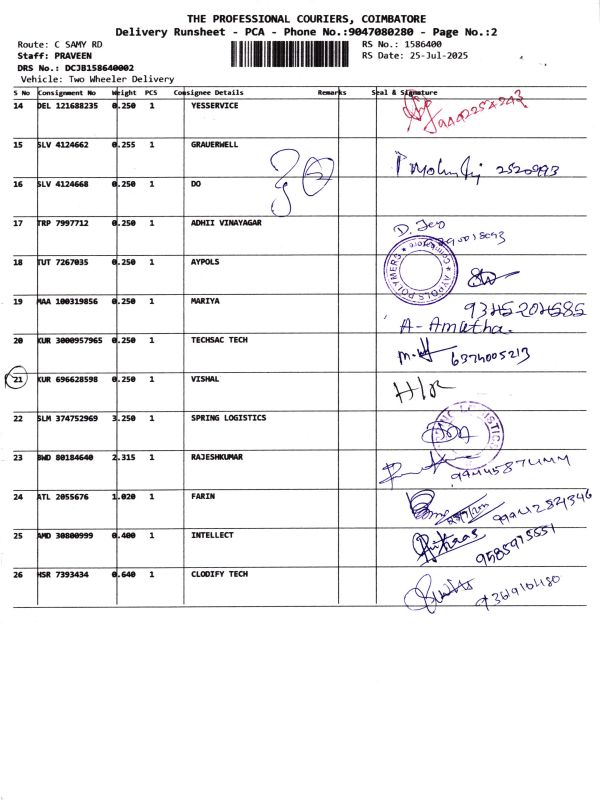 THE PROFESSIONAL COURIERS, COIMBATORE
Delivery Runsheet - PCA - Phone No.:9047080280 - Page No.:2
Route: C SAMY RD RS No.: 1586400
Staff: PRAVEEN RS Date: 25-Jul-2025
DRS No.: DCJB158640002
Vehicle: Two Wheeler Delivery
S No Consignment No Weight PCS Consignee Details Remarks Seal & Signature
14 DEL 121688235 0.250 1 YESSERVICE
15 SLV 4124662 0.255 1 GRAUERWELL
2520993
16 SLV 4124668 0.250 1 DO
17 TRP 7997712 0.250 1 ADHII VINAYAGAR
D. Jey
18 TUT 7267035 0.250 1 AYPOLS
AYPOLS POLYMERS Coimbatore
19 MAA 100319856 0.250 1 MARIYA
9345204585
A-Amutha.
20 KUR 3000957965 0.250 1 TECHSAC TECH
6374005213
21 KUR 696628598 0.250 1 VISHAL
H/R
22 SLM 374752969 3.250 1 SPRING LOGISTICS
23 BWD 80184640 2.315 1 RAJESHKUMAR
24 ATL 2055676 1.020 1 FARIN
9944284346
25 AMD 30800999 0.400 1 INTELLECT
9585975551
26 HSR 7393434 0.640 1 CLODIFY TECH